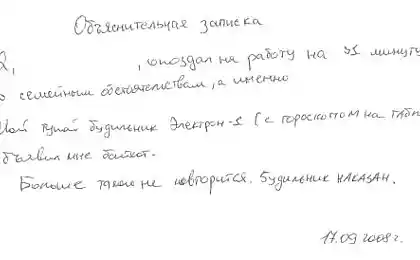 Объяснительная записка
Я, , опоздал на работу на 31 минуту
по семейным обстоятельствам, а именно
Мой тупой будильник Электрон-1 (с гороскопом на табло
объявил мне бойкот.
Больше такого не повторится. Будильник НАКАЗАН.
17.09 2008г.